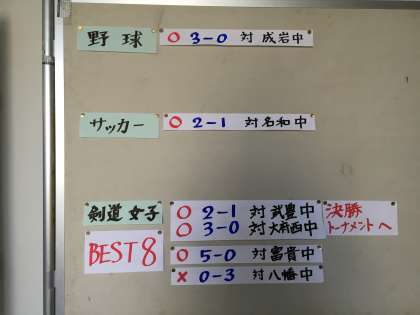 野球
○ 3-0 対 成岩中
サッカー
○ 2-1 対名和中
剣道女子
○ 2-1 対武豊中
○ 3-0 対大府西中
決勝
トーナメントへ
BEST 8
○ 5-0 対富貴中
× 0-3 対八幡中